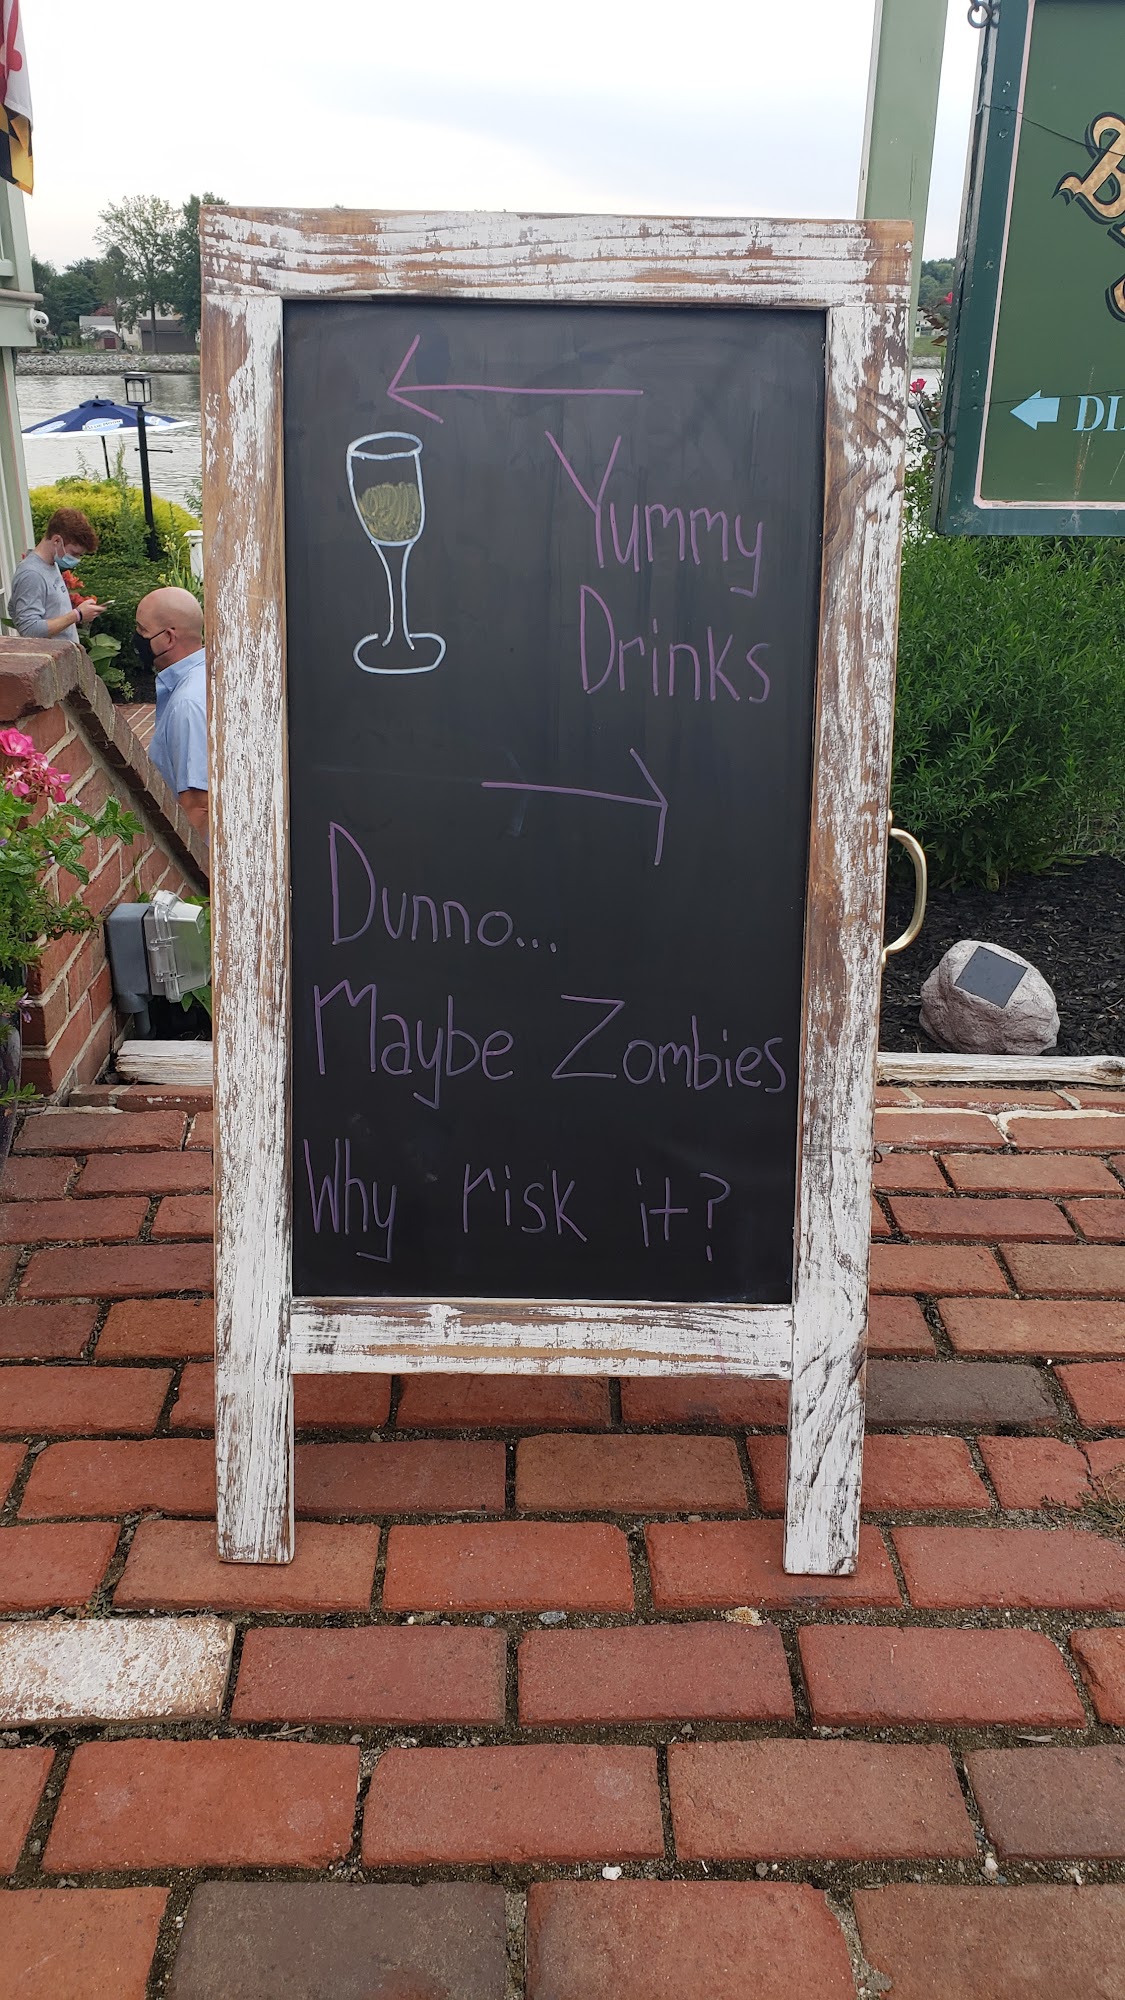 Yummy
Drinks
Dunno...
Maybe Zombies
Why risk it?